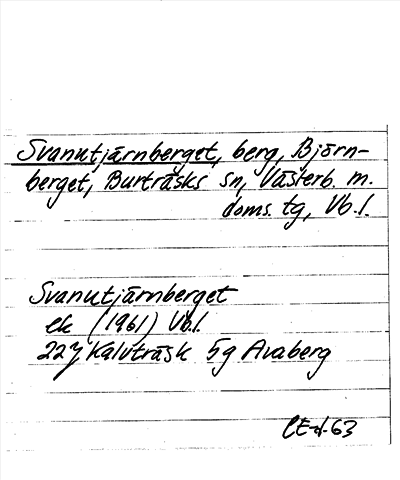 Svanutjärnberget, berg, Björn-
berget, Burträsks sn, Västerb. m.
doms. tg, Vb. l.
Svanutjärnberget
ek (1961) Vb. l.
22J Kalvträsk 5g Avaberg
CE-d-63